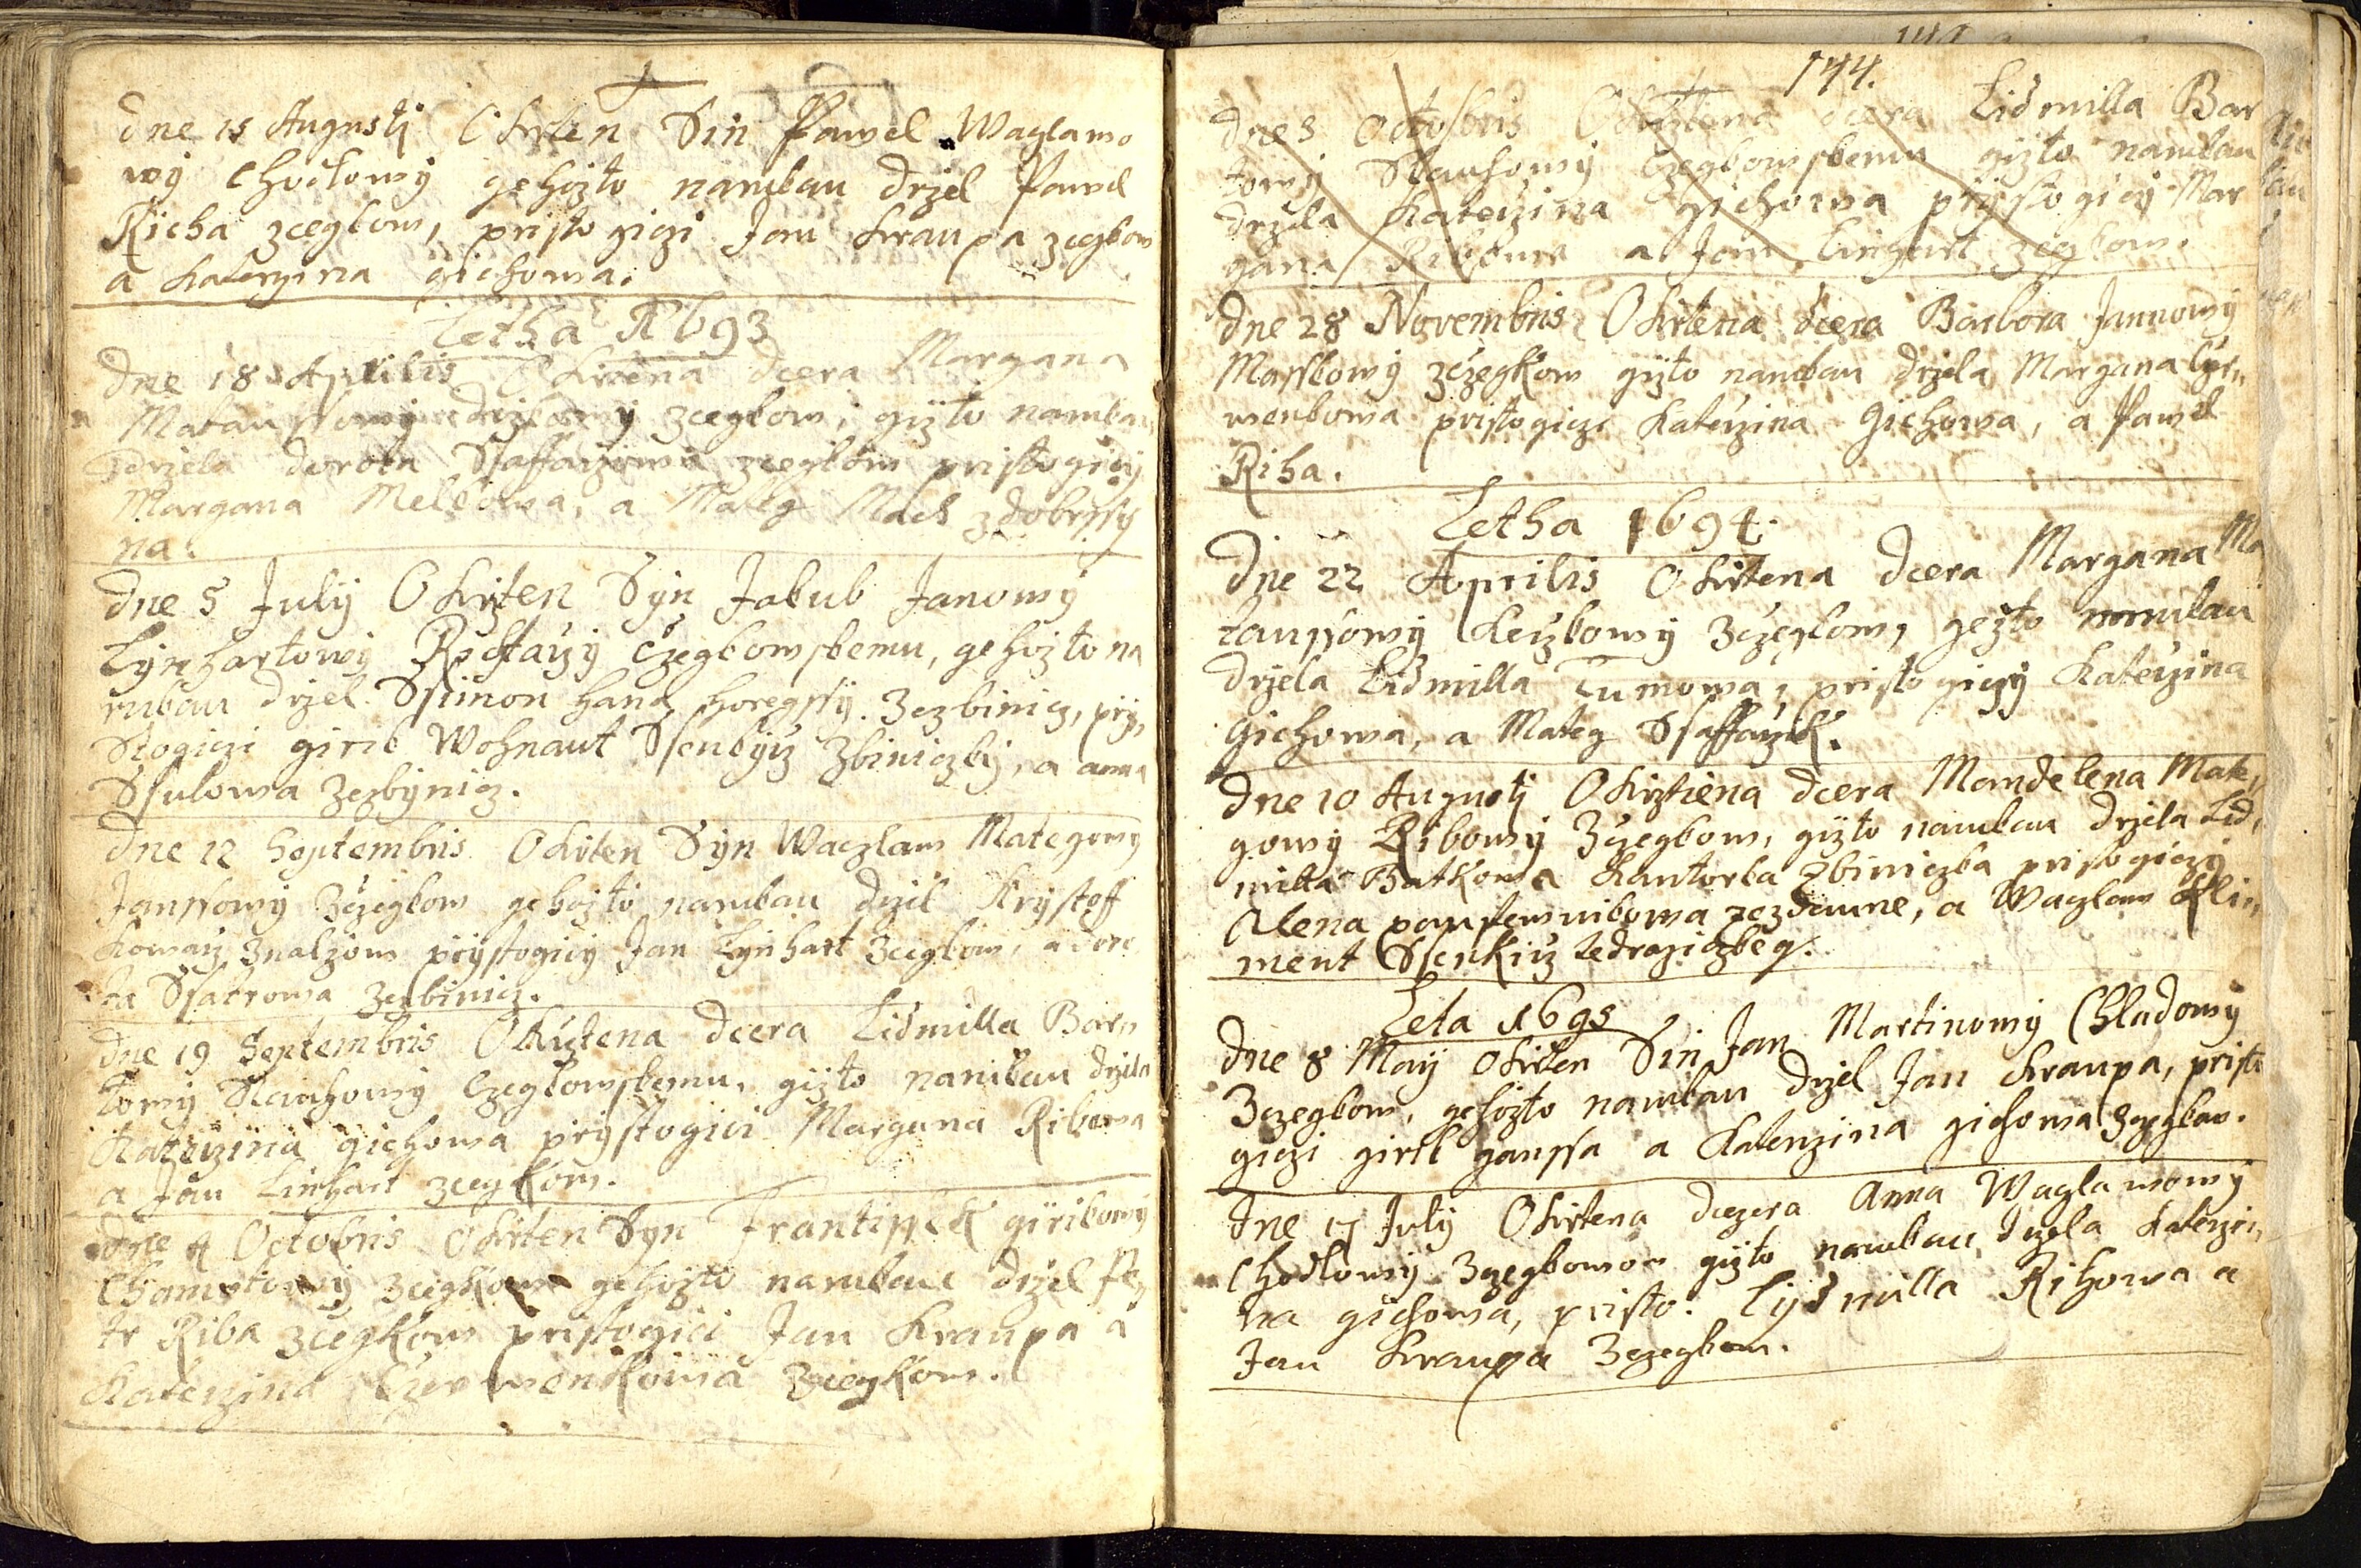 dne 15 Augusti Okrten Sin Pawel Waglawo
wy Chodlowy gehozto narukau drzel Pawel
Richa zcegkow, pristo giczi Jan Kraupa zcegkow
a Katerzina Gichowa.
Letha 1693
dne 18 Aprilis Okrtena dcera Margana
Mataussowy zcegkow, gizto narukau
drzela dorota Ssaffarzowa zcegkow pristogiczy
Margana Melkowa, a Mateg Mach zdobrzssy
na.
dne 5 July Okrzten Syn Jakub Janowy
Lynhartowy Richtarzy Czegkowskemu, gehozto na
rukau drzel Ssimon hanz horegssy. zezbinicz, przy,,
stogiczi girik Wohnaut Ssenkyrz Zbiniczky, a anna
Ssulowa zezbynicz.
dne 12 Septembris Okrten Syn Waczlaw Mategowy
Janssowy zczegkow gehozto narukau drzel Krystoff
Kowarz znalzow przystogiczy Jan Lynhart zcegkow, a doro
ta Ssatrowa zezbinicz.
dne 19 Septembris Okrztena dcera Lidmilla Bar,,
towy Stauhowy Czegkowskemu, gizto narukau drzela
Katerzina gichowa przystogici Margana Ribowa
a Jan Linhart zcegkow.
dne 4 Octobris Okrten Syn Frantissek girikowy
Chamotowy zcegkow gehozto narukau drzel Pe,
tr Riba zcegkow pristogici Jan Kraupa a
Katerzina Czerwenkowa zcegkow.
144.
dne 5 Octobris Okrztena dcera Lidmilla Bar
towy Stauhowy Czegkowskemu gizto narukau
drzela Katerzina gichowa przystogiczy Mar
gana Ribowa a Jan Linhart zcegkow.
dne 28 Novembris Okrtena dcera Barbora Jannowy
Masskowy zczegkow gizto narukau drzela Margana Czer,,
wenkowa pristogiczi Katerzina Gichowa, a Pawel
Riha.
Letha 1694.
dne 22 Aprilis Okrtena dcera Margana Ma
taussowy zczegkow, gezto narukau
drzela Lidmilla Tumowa, pristogiczy Katerzina
Gichowa, a Mateg Ssaffarzik.
dne 10 Augusti Okrztiena dcera Mandelena Mate,,
gowy Ribowy zczegkow, gizto narukau drzela Lid,
milla Batkowa Kantorka Zbiniczka pristogiczy
Alena zezdaune, a Waglaw Kli,,
ment Ssenkirz tedraziczkeg.
Leta 1695
dne 8 May Okrten Sin Jan Martinowy Chladowy
zczegkow, gehozto narukau drzel Jan Kraupa, pristo
giczi girik ganssa a Katerzina gichowa zczegkow.
dne 17 July Okrtena dczera Anna Waglawowy
Chodlowy zczegkowa gizto narukau drzela Katerzi,,
na gichowa, pristo: Lydmilla Rihowa a
Jan Kraupa zczegkow.